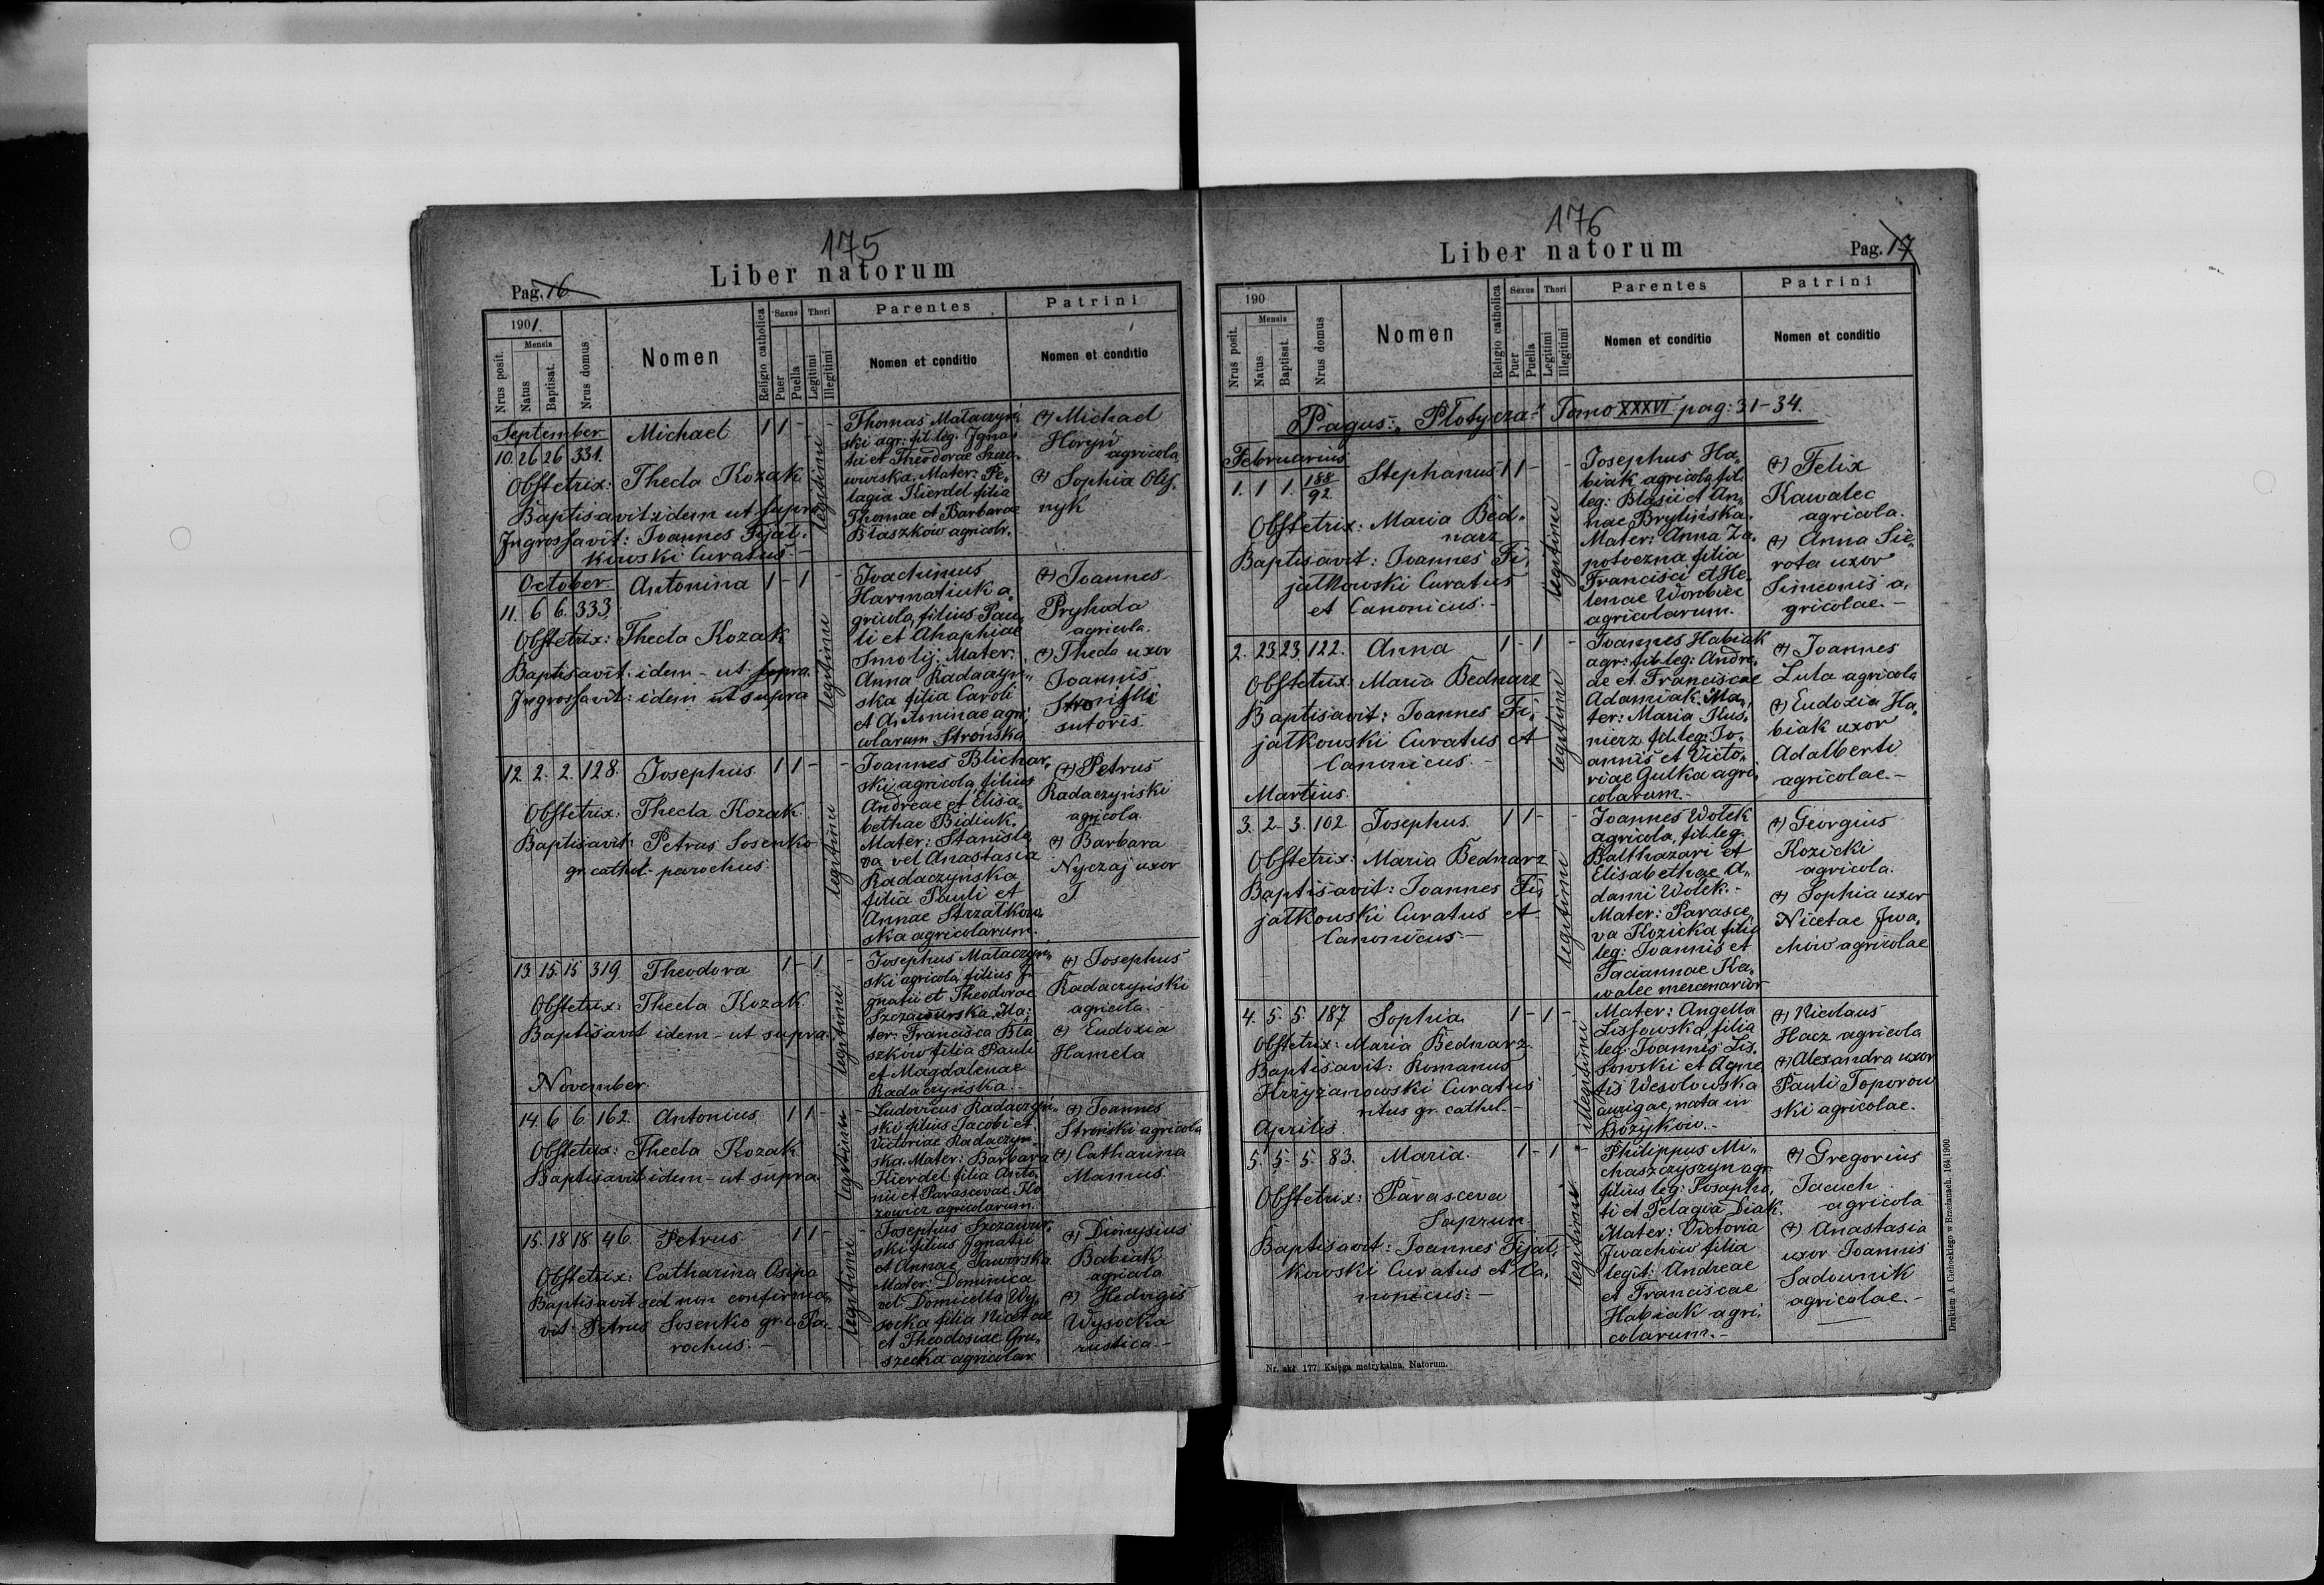 175
Liber natorum
Pag. 16
1901.
Mensis
Nrus posit.
Natus
Baptisat.
Nrus domus
Nomen
Religio catholica
Sexus
Puer
Puella
Thori
Legitimi
Illegitimi
Parentes
Nomen et conditio
Patrini
Nomen et conditio
September
10. 26 26 331.
Michael 1 1 - -
Obstetrix: Thecla Kozak
Baptisavit idem ut supra
Ingrossavit: Joannes Fijał-
kowski Curatus. -
legitimi
Thomas Mataczyń-
ski agr: fil. leg. Igna-
tii et Theodorae Szcza-
wurska. Mater: Pe-
lagia Kierdel filia
Thomae et Barbarae
Błaszków agricolr.
(+) Michael
Horyń
agricola
(+) Sophia Olij-
nyk
October
11. 6 6. 333.
Antonina 1 - 1 -
Obstetrix: Thecla Kozak
Baptisavit: idem - ut supra
Ingrossavit: idem ut supra
legitimi
Joachimus
Harmatiuk a-
gricola, filius Pau-
li et Ahaphiae
Smolij. Mater:
Anna Radaczyń-
ska filia Caroli
et Antoninae agri-
colarum Strońska
(+) Joannes
Pryhoda
agricola.
(+) Thecla uxor
Joannis
Stroński
sutoris
12. 2. 2. 128.
Josephus. 1 1 - -
Obstetrix: Thecla Kozak.
Baptisavit: Petrus Sosenko
gr. cathol. parochus.
legitimi
Joannes Blichar-
ski, agricola, filius
Andreae et Elisa-
bethae Bidiuk.
Mater: Stanisla-
va vel Anastasia
Radaczynska
filia Pauli et
Annae Strzałkow-
ska agricolarum.
(+) Petrus
Radaczyński
agricola
(+) Barbara
Nyczaj uxor
J.
13. 15. 15 319
Theodora 1 - 1 -
Obstetrix: Thecla Kozak
Baptisavit idem - ut supra.
legitimi
Josephus Mataczyń-
ski agricola filius I-
gnatii et Theodorae
Szczawurska. Ma-
ter: Francisca Bła-
szków filia Pauli
et Magdalenae
Radaczyńska. -
(+) Josephus
Radaczyński
agricola. -
(+) Eudoxia
Hameła
November
14. 6 6. 162.
Antonius 1 1 - -
Obstetrix: Thecla Kozak
Baptisavit idem - ut supra.
legitimi
Ludovicus Radaczyń-
ski filius Jacobi et
Victoriae Radaczyń-
ska. Mater: Barbara
Kierdel filia Anto-
nii et Parascevae Ko
zowicz agricolarum.
(+) Joannes
Stroński agricola
(+) Catharina
Mamus.
15. 18 18. 46.
Petrus. 1 1 - -
Obstetrix: Catharina Osipa
Baptisavit sed non confirma-
vit Petrus Sosenko gr. c. Pa-
rochus. -
legitimi
Josephus Szczawur-
ski filius Ignatii
et Annae Jaworska
Mater: Dominica
vel Domicella Wy-
socka filia Nicetae
et Theodosiae Gru-
szecka agricolar
(+) Dionysius
Babiak
agricola
(+) Hedvigis
Wysocka
rustica. -
176
Liber natorum
Pag. 17
190
Mensis
Nrus posit.
Natus
Baptisat.
Nrus domus
Nomen
Religio catholica
Sexus
Puer
Puella
Thori
Legitimi
Illegitimi
Parentes
Nomen et conditio
Patrini
Nomen et conditio
Pagus: „Płotycza" Tomo XXXVI pag: 31-34.
Februarius
1. 1 1. 188/92.
Stephanus 1 1 - -
Obstetrix: Maria Bed-
narz
Baptisavit: Joannes Fi-
jałkowski Curatus
et Canonicus. -
legitimi
Josephus Ha-
biak agricola, fil.
leg: Blasii et An-
nae Brylińska.
Mater: Anna Za-
potoczna filia
Francisci et He-
lenae Worobiec
agricolarum.
(+) Felix
Kawalec
agricola.
(+) Anna Sie-
rota uxor
Simeonis a-
gricolae. -
2. 23 23. 122.
Anna 1 - 1 -
Obstetrix: Maria Bednarz
Baptisavit: Joannes Fi-
jałkowski Curatus et
Canonicus. -
legitimi
Joannes Habiak
agr: fil. leg: Andre-
ae et Franciscae
Adamiak. Ma-
ter: Maria Kus-
nierz fil. leg: Jo-
annis et Victo-
riae Gulka agri-
colarum. -
(+) Joannes
Luta agricola
(+) Eudoxia Ha-
biak uxor
Adalberti
agricolae. -
Martius.
3. 2 - 3. 102
Josephus. 1 1 - -
Obstetrix: Maria Bednarz
Baptisavit: Joannes Fi-
jałkowski Curatus et
Canonicus. -
legitimi
Joannes Wołek
agricola, fil. leg.
Balthazari et
Elisabethae A-
dami Wołek. -
Mater: Parasce-
va Kozicka filia
leg: Joannis et
Taciannae Ka-
walec mercenarior
(+) Georgius
Kozicki
agricola.
(+) Sophia uxor
Nicetae Iwa-
chów agricolae
4. 5. 5. 187
Sophia 1 - 1 -
Obstetrix: Maria Bednarz.
Baptisavit: Romanus
Krzyżanowski Curatus
ritus gr. cathol. -
illegitimi
Mater: Angella
Lissowska filia
leg: Joannis Lis-
sowski et Agne
tis Wesołowska
aurigae, nata in
Bożyków. -
(+) Nicolaus
Hacz agricola
(+) Alexandra uxor
Pauli Toporow
ski agricolae.
Aprilis
5. 5. 5. 83.
Maria. 1 - 1 -
Obstetrix: Parasceva
Saprun.
Baptisavit: Joannes Fijał-
kowski Curatus et Ca-
nonicus. -
legitimi
Philippus Mi-
chaszczyszyn agr.
filius leg: Josapha-
ti et Pelagia Diak.
Mater: Victoria
Iwachów filia
legit: Andreae
et Franciscae
Habiak agri-
colarum. -
(+) Gregorius
Jacuch
agricola
(+) Anastasia
uxor Joannis
Sadownik
agricolae. -
Nr. skł 177. Księga metrykalna. Natorum.
Drukiem A. Cichockiego w Brzeżanach. 164/1900